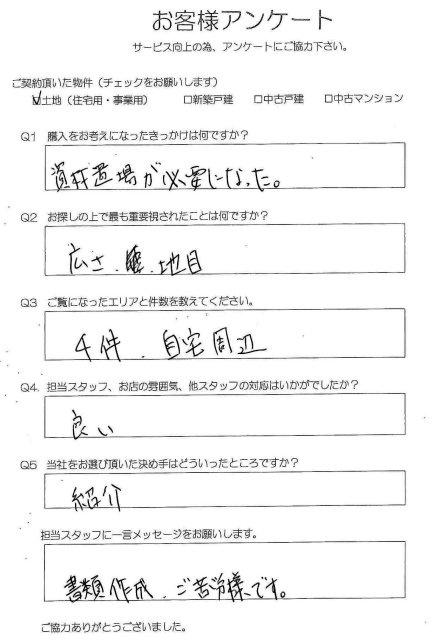 お客様アンケート
サービス向上の為、アンケートにご協力下さい。
ご契約頂いた物件（チェックをお願いします）
☑土地（住宅用・事業用） □新築戸建 □中古戸建 □中古マンション
Q1 購入をお考えになったきっかけは何ですか？
資材置場が必要になった。
Q2 お探しの上で最も重要視されたことは何ですか？
広さ、地目
Q3 ご覧になったエリアと件数を教えてください。
4件、自宅周辺
Q4. 担当スタッフ、お店の雰囲気、他スタッフの対応はいかがでしたか？
良い
Q5 当社をお選び頂いた決め手はどういったところですか？
紹介
担当スタッフに一言メッセージをお願いします。
書類作成、ご苦労様です。
ご協力ありがとうございました。